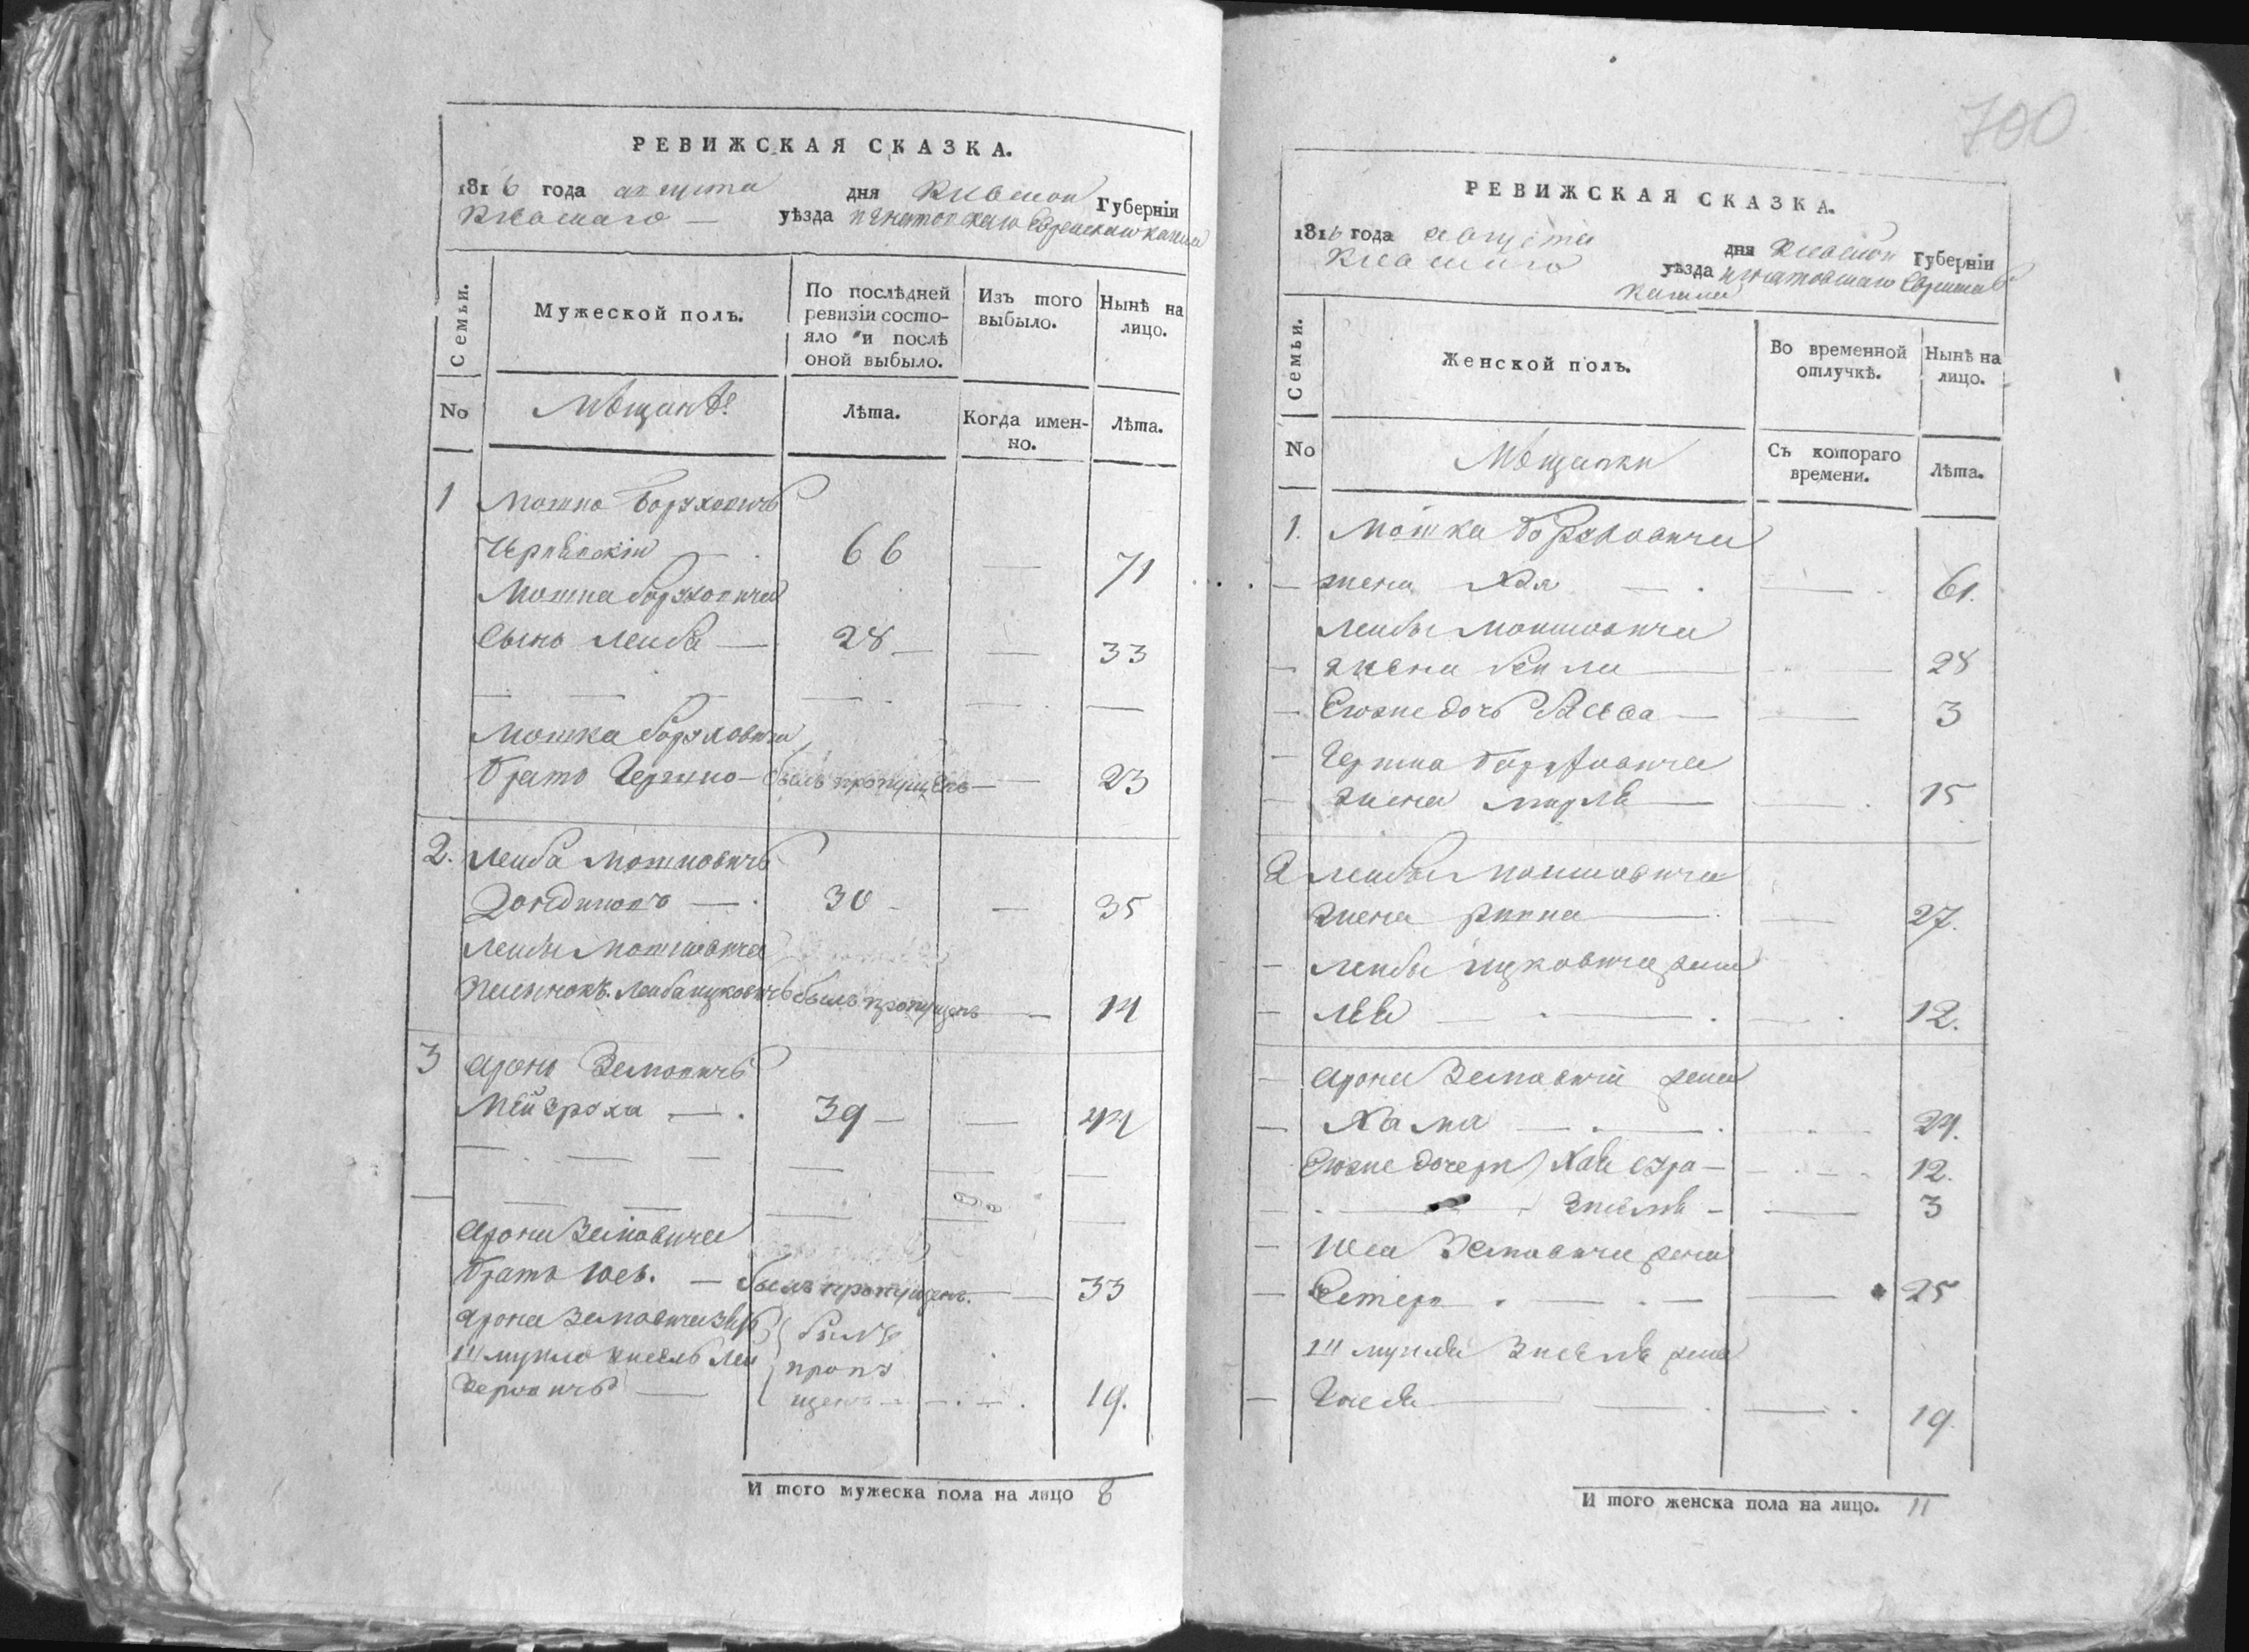 РЕВИЖСКАЯ СКАЗКА.
1816 года августа дня Киевской Губерніи
Киевскаго уѣзда Игнатовскаго Еврейскаго кагала
Семьи.
Мужеской полъ.
По послѣдней ревизіи состояло и послѣ оной выбыло.
Изъ того выбыло.
Нынѣ на лицо.
No
Мѣщане
Лѣта.
Когда именно.
Лѣта.
1 Мошко Борухович
66 71
Мошка Боруховича
Сынъ Лейба 28 33
Мошка Боруховича
братъ Гершко былъ пропущенъ 23
2. Лейба Мошковичъ
30 35
Лейбы Мошковича
Лейба Ицковичъ былъ пропущенъ 14
3 Аронъ Зелмовичъ
39 44
Арона Зелмовича
братъ Іось. былъ пропущенъ. 33
Арона Зелмовича зять
былъ
пропу
щенъ 19.
И того мужеска пола на лицо 8
700
РЕВИЖСКАЯ СКАЗКА.
1816 года августа дня Киевской Губерніи
Киевскаго уѣзда Игнатовскаго Еврейскаго
кагала
Семьи.
Женской полъ.
Во временной отлучкѣ.
Нынѣ на лицо.
No
Мѣщанки
Съ котораго времени.
Лѣта.
1. Мошка Боруховича
жена Хая 61.
Лейбы Мошковича
жена Бейла 28
Егоже дочь Бася 3
Гершка Боруховича
жена Мирля 15
2 Лейбы Мошковича
жена Ривка 27.
Лейбы Ицковича жена
Лея 12.
Арона Зелмовича жена
24.
Егоже дочери Хая Сура 12.
3
Іося Зелмовича жена
Естера 25
жена
19.
И того женска пола на лицо. 11